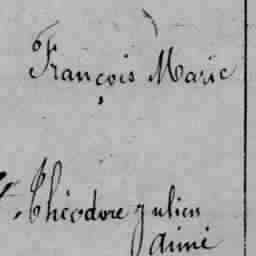 François Marie
Théodore Julien
Aimé